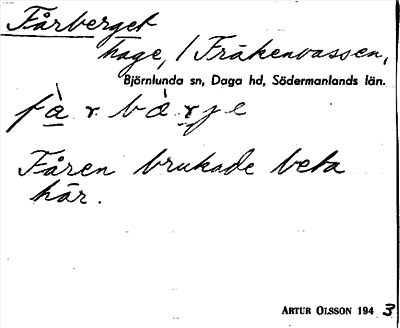 Fårberget
hage, / Fräkenvassen,
Björnlunda sn, Daga hd, Södermanlands län.
fà̱r bà̱r̯je
Fåren brukade beta
här.
ARTUR OLSSON 1943